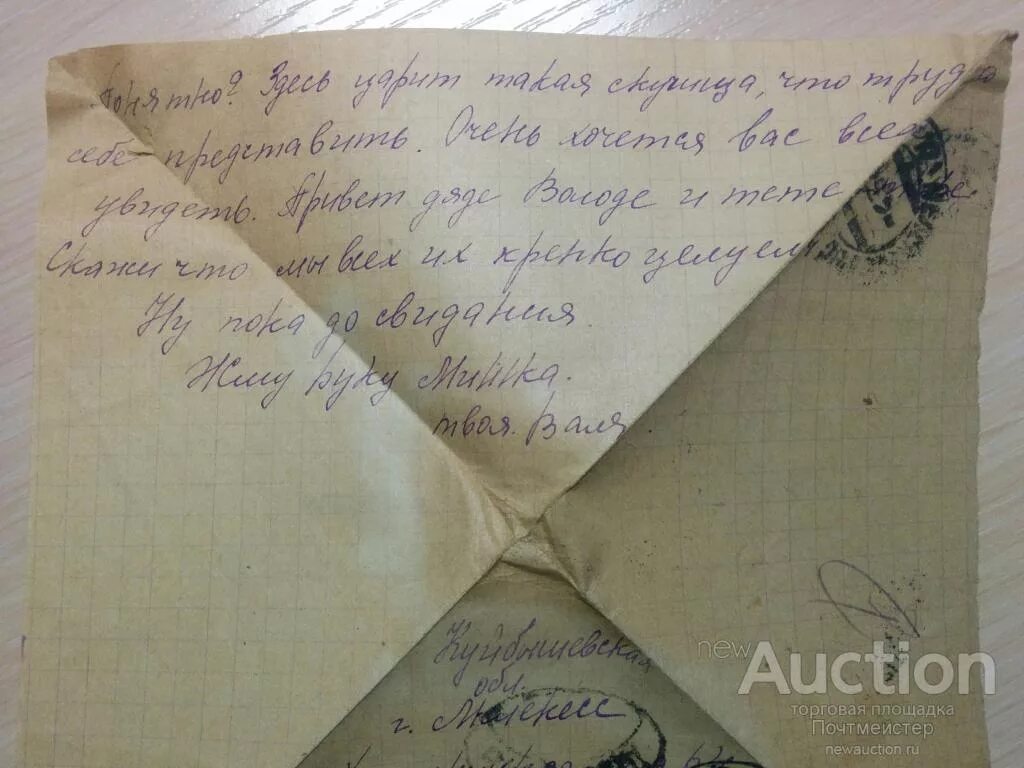 Понятно? Здесь царит такая скучища, что трудно
себе представить. Очень хочется вас всех
увидеть. Привет дяде Володе и тете
Скажи что мы всех их крепко целуем
Ну пока до свидания.
Жму руку Мишка.
твоя Валя
Куйбышевская
обл.
г. Мелекесс
newAuction
торговая площадка
Почтмейстер
newauction.ru